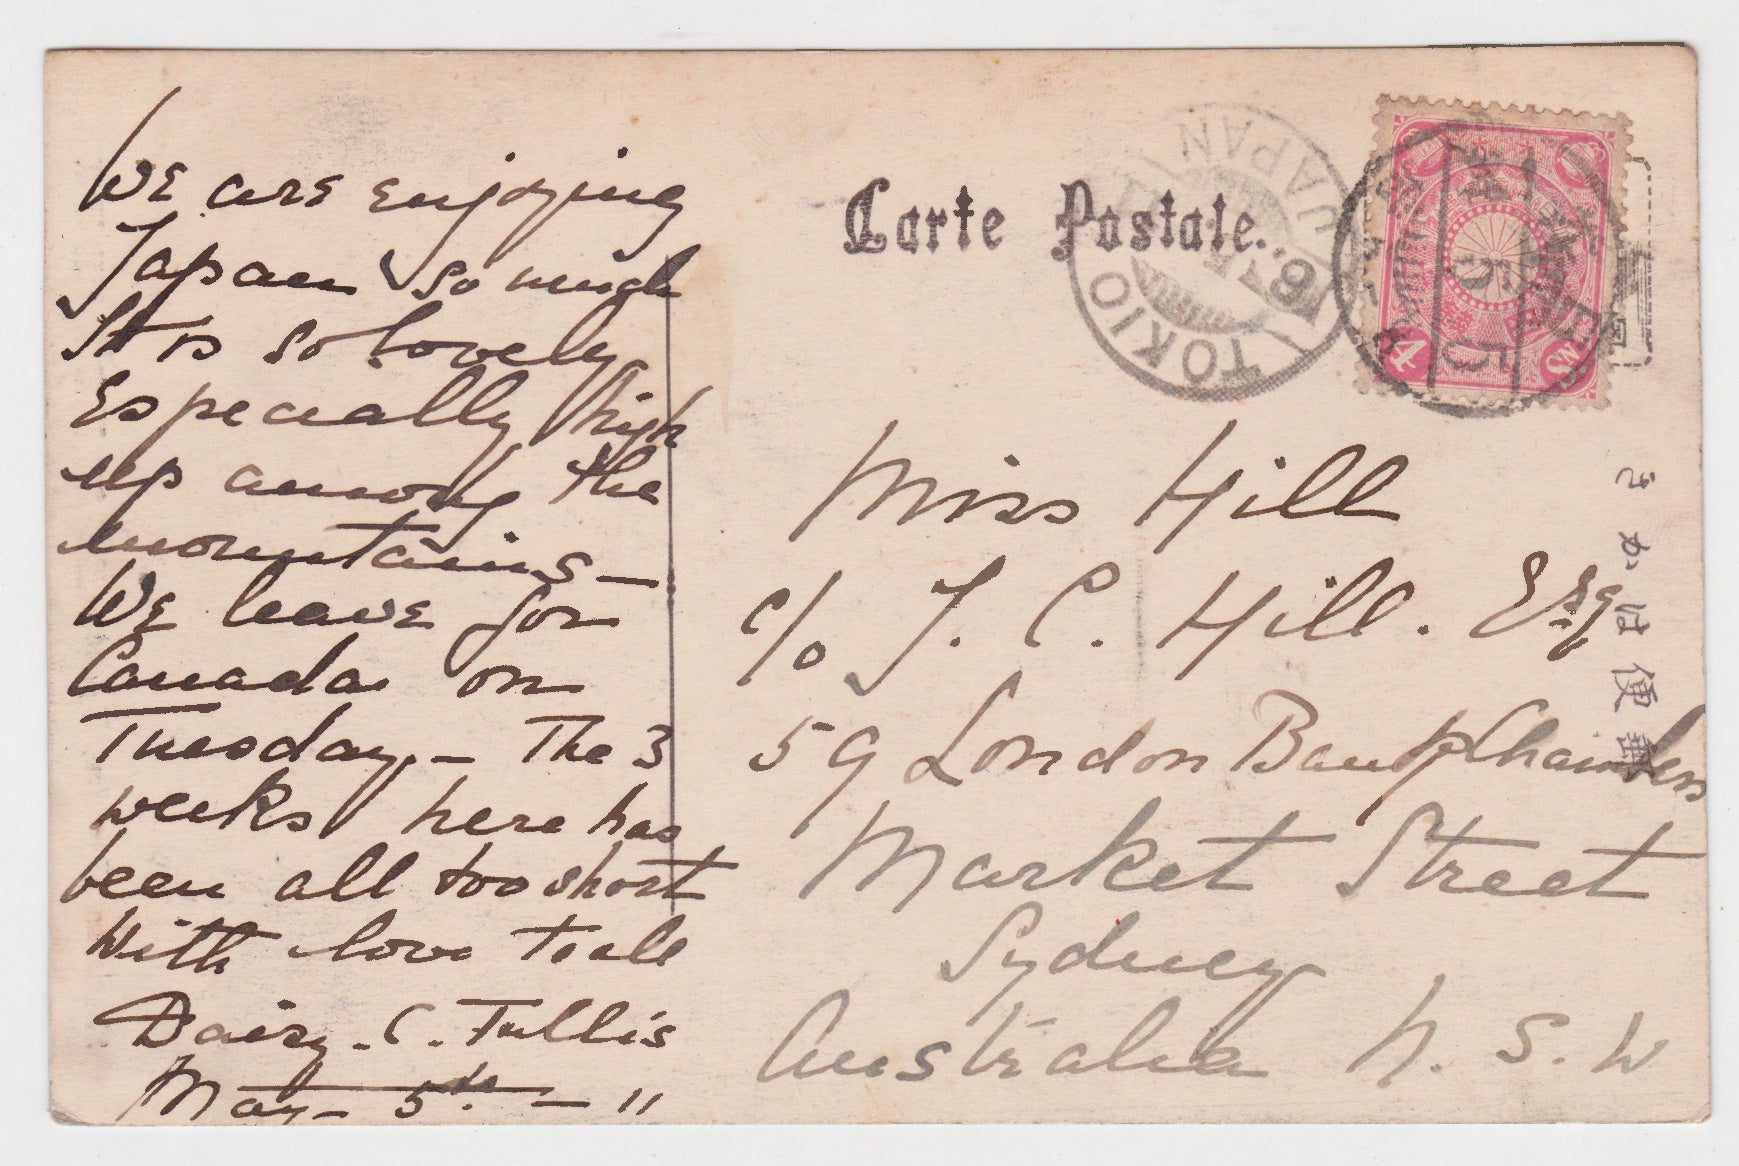 We are enjoying
Japan so much
It is so lovely
Especially high
up among the
mountains –
We leave for
Canada on
Tuesday – The 3
weeks here has
been all too short
With love to all
Daisy. C. Tullis
May – 5th. – 11
Carte Postale.
TOKIO
JAPAN
4
Sn
Miss Hill
c/o J. C. Hill. Esq
59 London Bank Chambers
Market Street
Sydney
Australia N. S. W
きかは便郵